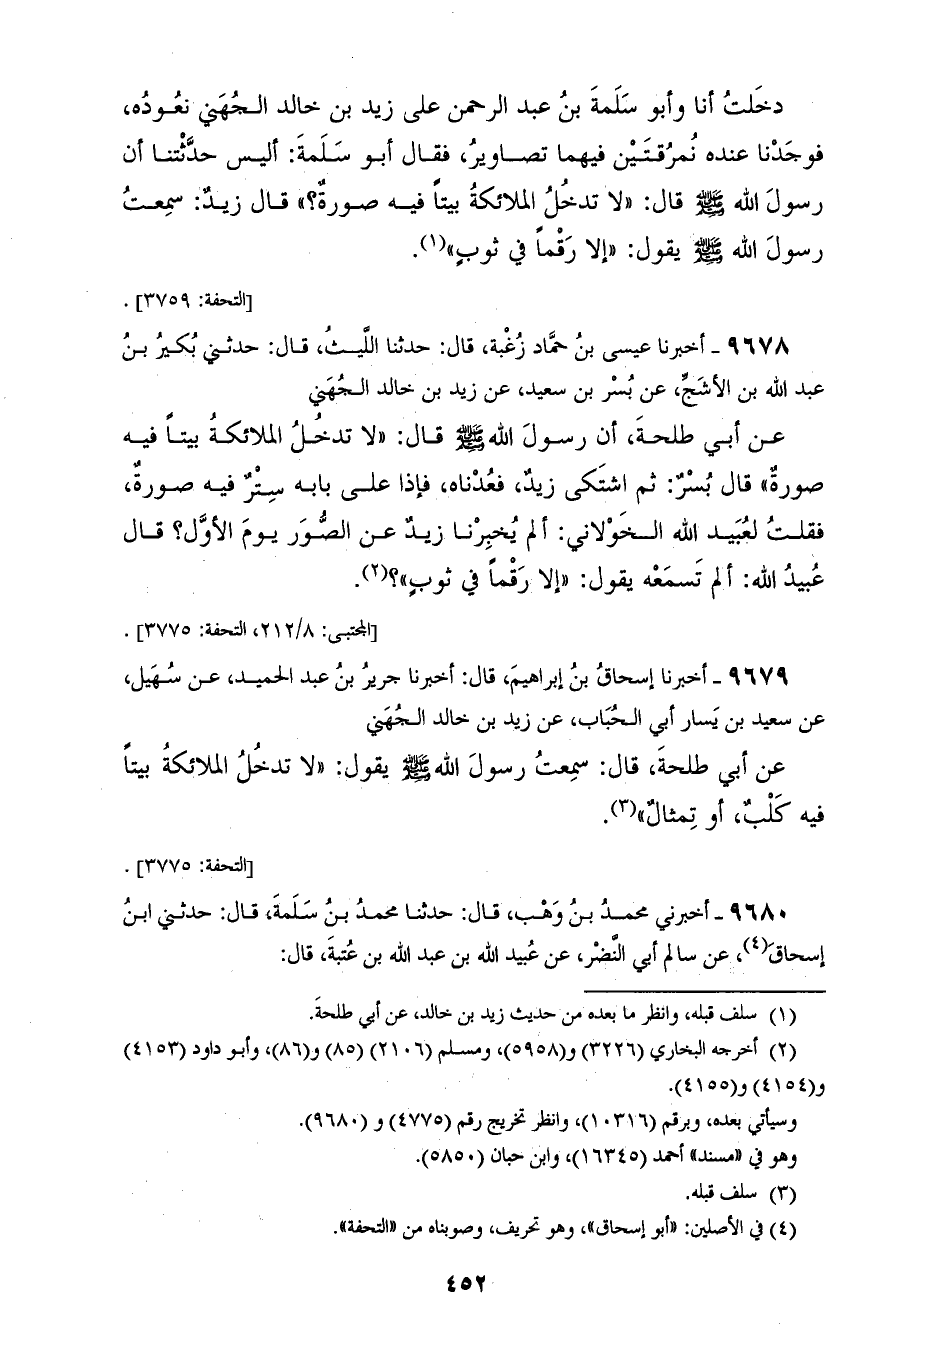 دخَلتُ أنا وأبو سَلَمةَ بنُ عبد الرحمن على زيد بن خالد الجُهَني نعُودُه،
فوجَدْنا عنده نُمرُقتَيْن فيهما تصاويرُ، فقال أبو سَلَمةَ: أليس حدَّثْتنا أن
رسولَ الله ﷺ قال: «لا تدخُلُ الملائكةُ بيتاً فيه صورةٌ؟» قال زيدٌ: سمِعتُ
رسولَ الله ﷺ يقول: «إلا رَقْماً في ثوبٍ»(١).
[التحفة: ٣٧٥٩] .
٩٦٧٨ ـ أخبرنا عيسى بنُ حمَّاد زُغْبة، قال: حدثنا اللَّيثُ، قال: حدثني بُكيرُ بنُ
عبد الله بن الأشجِّ، عن بُسْر بن سعيد، عن زيد بن خالد الجُهَني
عن أبي طلحةَ، أن رسولَ الله ﷺ قال: «لا تدخُلُ الملائكةُ بيتاً فيه
صورةٌ» قال بُسْرٌ: ثم اشتكى زيدٌ، فعُدْناه، فإذا على بابه سِتْرٌ فيه صورةٌ،
فقلتُ لعُبَيد الله الخَوْلاني: ألم يُخبِرْنا زيدٌ عن الصُّوَر يومَ الأوَّل؟ قال
عُبيدُ الله: ألم تَسمَعْه يقول: «إلا رَقْماً في ثوبٍ»؟(٢).
[المجتبى: ٢١٢/٨، التحفة: ٣٧٧٥] .
٩٦٧٩ ـ أخبرنا إسحاقُ بنُ إبراهيمَ، قال: أخبرنا جريرُ بنُ عبد الحميد، عن سُهَيل،
عن سعيد بن يَسار أبي الحُبَاب، عن زيد بن خالد الجُهَني
عن أبي طلحةَ، قال: سمِعتُ رسولَ الله ﷺ يقول: «لا تدخُلُ الملائكةُ بيتاً
فيه كَلْبٌ، أو تِمثالٌ»(٣).
[التحفة: ٣٧٧٥] .
٩٦٨٠ ـ أخبرني محمدُ بنُ وَهْب، قال: حدثنا محمدُ بنُ سَلَمةَ، قال: حدثني ابنُ
إسحاقَ(٤)، عن سالم أبي النَّضْر، عن عُبيد الله بن عبد الله بن عُتبةَ، قال:
(١) سلف قبله، وانظر ما بعده من حديث زيد بن خالد، عن أبي طلحةَ.
(٢) أخرجه البخاري (٣٢٢٦) و(٥٩٥٨)، ومسلم (٢١٠٦) (٨٥) و(٨٦)، وأبو داود (٤١٥٣)
و(٤١٥٤) و(٤١٥٥).
وسيأتي بعده، وبرقم (١٠٣١٦)، وانظر تخريج رقم (٤٧٧٥) و (٩٦٨٠).
وهو في «مسند» أحمد (١٦٣٤٥)، وابن حبان (٥٨٥٠).
(٣) سلف قبله.
(٤) في الأصلين: «أبو إسحاق»، وهو تحريف، وصوبناه من «التحفة».
٤٥٢